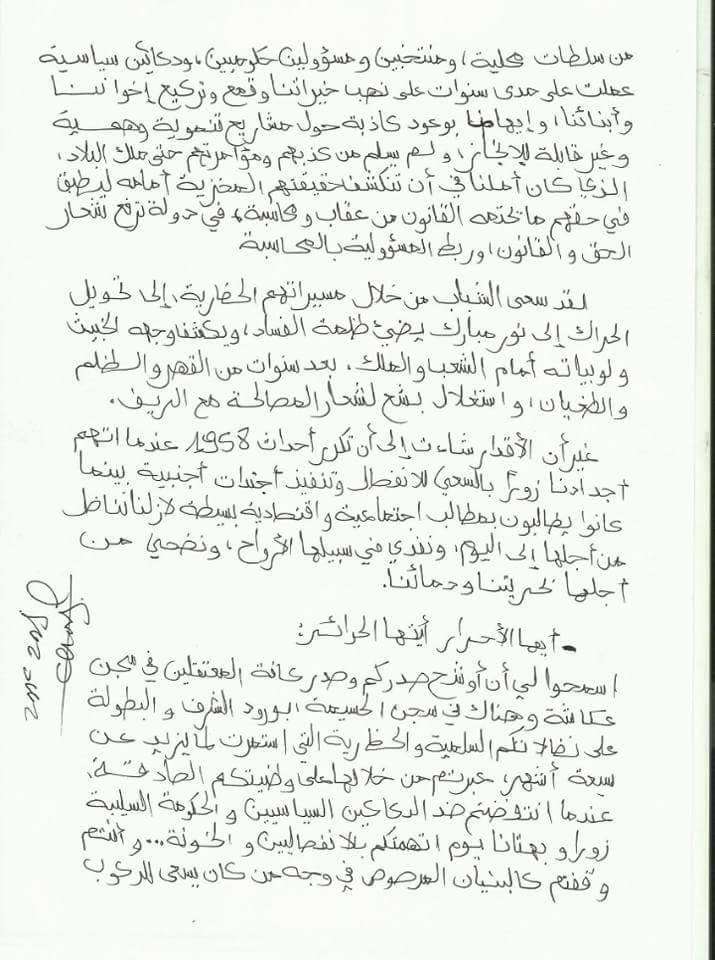 من سلطات محلية، ومنتخبين ومسؤولين حكوميين، ودكاكين سياسية
عملت على مدى سنوات على نهب خيراتنا وقمع وتركيع إخواننا
وأبنائنا، وإيهامنا بوعود كاذبة حول مشاريع تنموية وهمية
وغير قابلة للإنجاز، ولم يسلم من كذبهم ومؤامرتهم حتى ملك البلاد،
الذي كان أملنا في أن تنكشف حقيقتهم المخزية أمامه ليطبق
في حقهم ما يحتمه القانون من عقاب ومحاسبة، في دولة ترفع شعار
الحق والقانون، وربط المسؤولية بالمحاسبة
لقد سعى الشباب من خلال مسيراتهم الحضارية، إلى تحويل
الحراك إلى نور مبارك يضيئ ظلمة الفساد، ويكشف وجهه الخبيث
ولوبياته أمام الشعب والملك، بعد سنوات من القهر والظلم
والطغيان، واستغلال بشع لشعار المصالحة مع الريف.
غير أن الأقدار شاءت إلى أن تكرر أحداث 1958 عندما اتهم
أجدادنا زوراً بالسعي للانفصال وتنفيذ أجندات أجنبية بينما
كانوا يطالبون بمطالب اجتماعية واقتصادية بسيطة لازلنا نناضل
من أجلها إلى اليوم، ونفدي في سبيلها الأرواح، ونضحي من
أجلها بحريتنا ودمائنا.
- أيها الأحرار أيتها الحرائر:
اسمحوا لي أن أوشح صدركم وصدر كافة المعتقلين في سجن
عكاشة وهناك في سجن الحسيمة بورود الشرف والبطولة
على نضالاتكم السلمية والحضارية التي استمرت لما يزيد عن
سبعة أشهر، عبرتم من خلالها على وطنيتكم الصادقة.
عندما انتفضتم ضد الدكاكين السياسيين والحكومة السلبية
زورا وبهتانا يوم اتهمتكم بالانفصاليين والخونة... وأنتم
وقفتم كالبنيان المرصوص في وجه من كان يسعى للركوب